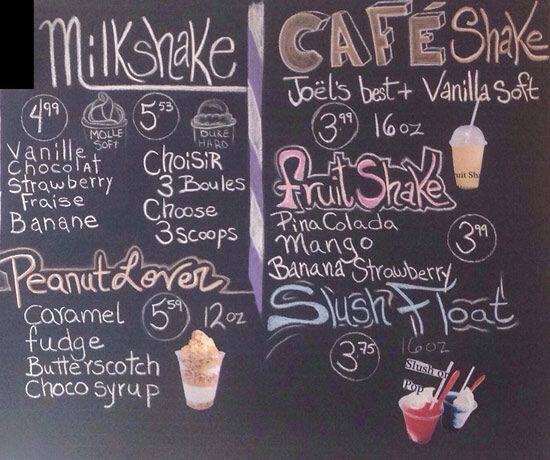 Milkshake
4.99
MOLLE
SOFT
5.53
DURE
HARD
Vanille
Chocolat
Strawberry
Fraise
Banane
Choisir
3 Boules
Choose
3 scoops
Peanut Lover
Caramel
fudge
Butterscotch
Choco syrup
5.59
12 oz
CAFÉ Shake
Joël's best + Vanilla Soft
3.99
16 oz
fruit Shake
Pina Colada
Mango
Banana Strawberry
3.99
Slush Float
3.75
16 oz
Slush or
Pop